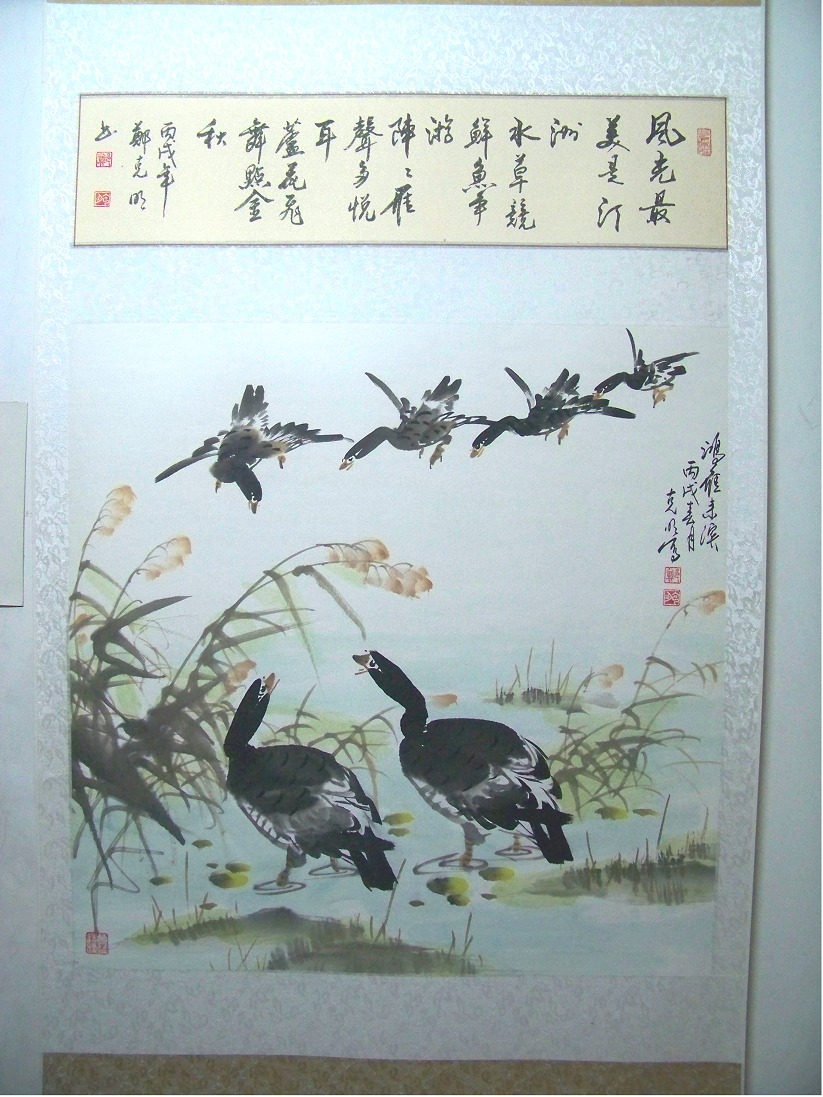 風光最
美是汀
洲
水草競
鮮魚爭
游
陣〻雁
聲多悦
耳
蘆花飛
舞點金
秋
丙戌年
鄭克明
书
鴻雁来濱
丙戌春月
克明寫